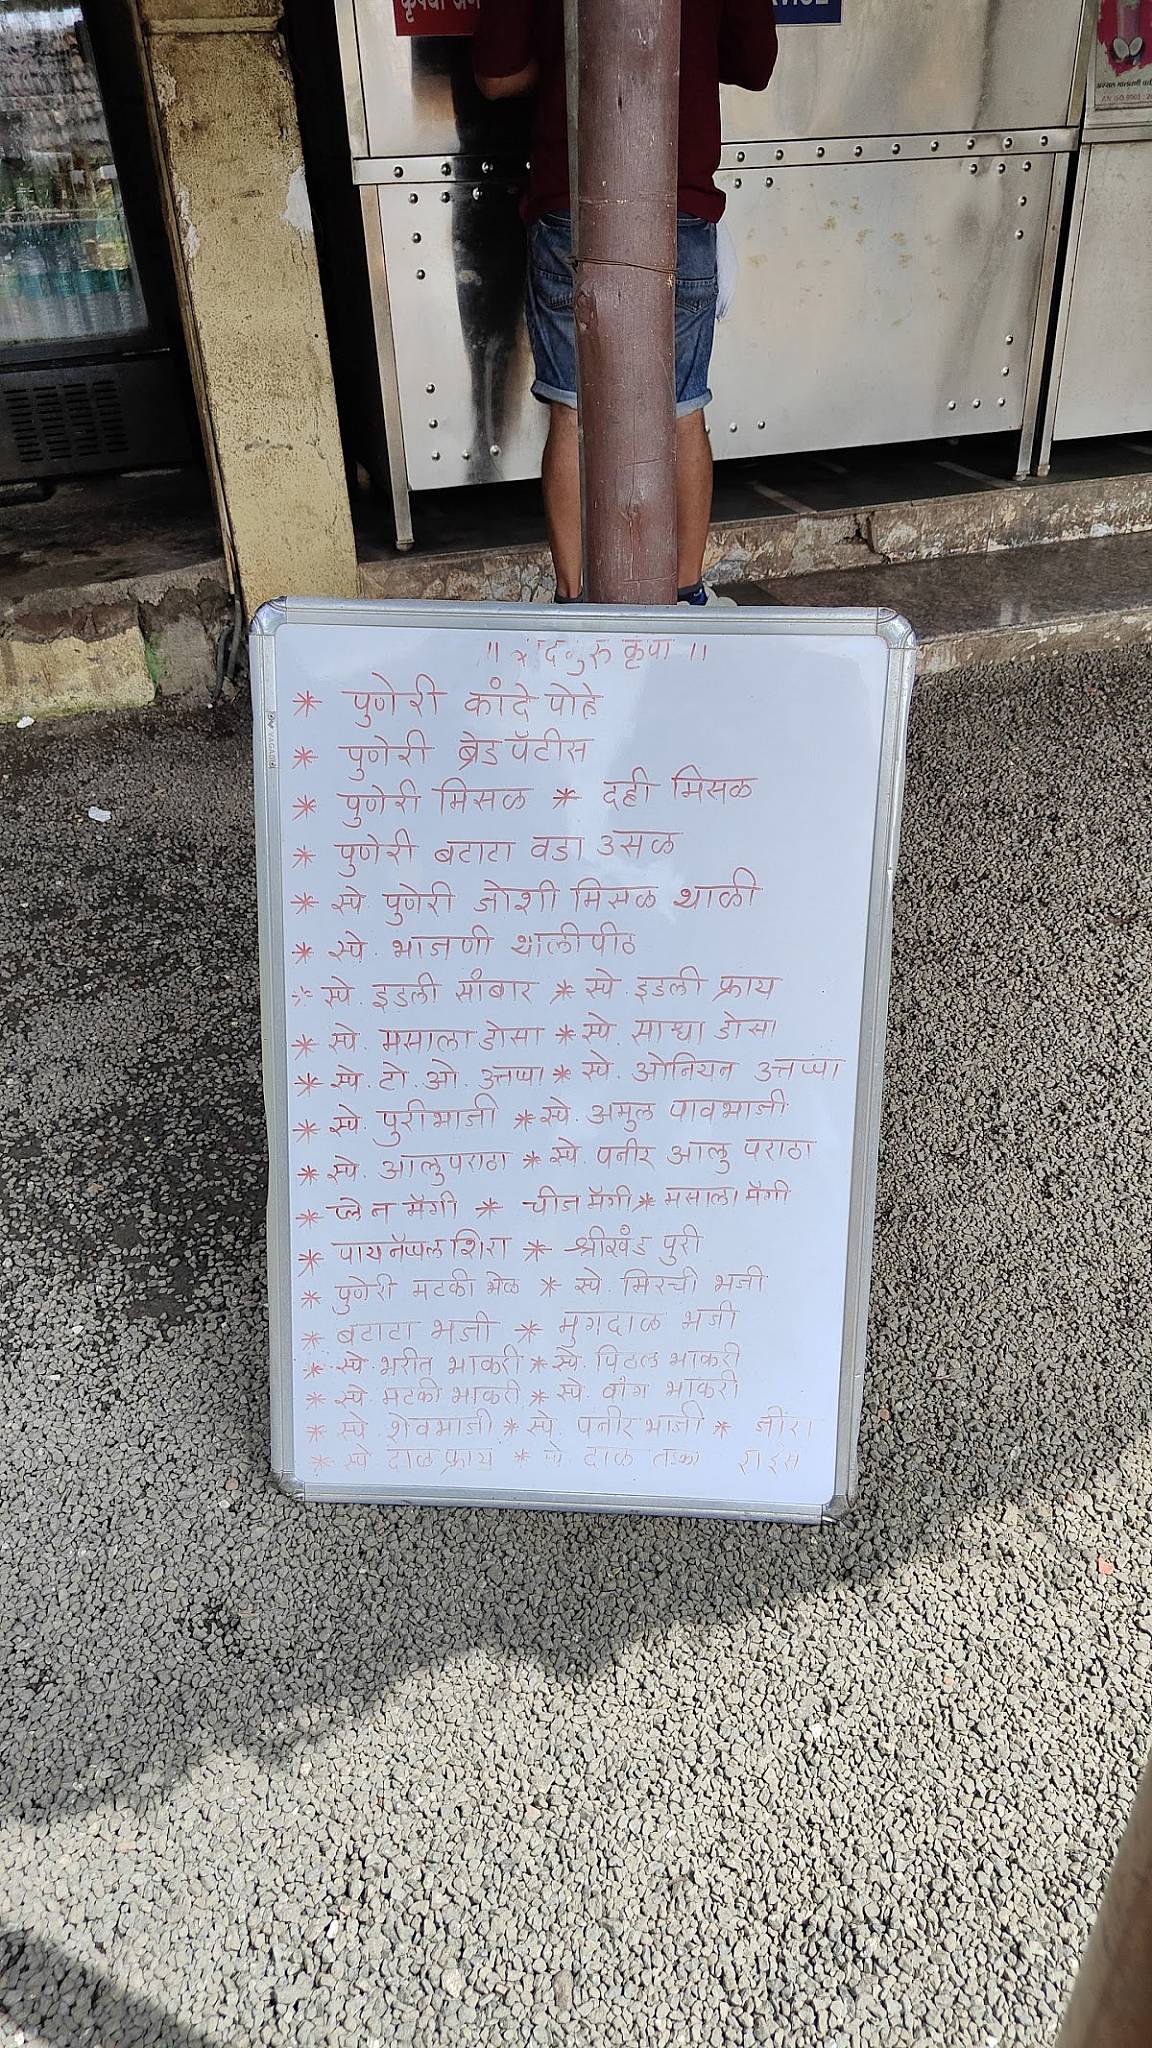 कृपया
VICE
AN ISO 9001 : 2
॥ सदगुरु कृपा ॥
* पुणेरी कांदे पोहे
* पुणेरी ब्रेड पॅटीस
* पुणेरी मिसळ * दही मिसळ
* पुणेरी बटाटा वडा उसळ
* स्पे पुणेरी जोशी मिसळ थाळी
* स्पे. भाजणी थालीपीठ
* स्पे. इडली सांबार * स्पे. इडली फ्राय
* स्पे. मसाला डोसा * स्पे. साधा डोसा
* स्पे. टो. ओ. उत्तप्पा * स्पे. ओनियन उत्तप्पा
* स्पे. पुरीभाजी * स्पे. अमुल पावभाजी
* स्पे. आलुपराठा * स्पे. पनीर आलु पराठा
* प्लेन मॅगी * चीज मॅगी * मसाला मॅगी
* पायनॅपल शिरा * श्रीखंड पुरी
* पुणेरी मटकी भेळ * स्पे. मिरची भजी
* बटाटा भजी * मुगदाळ भजी
* स्पे. भरीत भाकरी * स्पे. पिठल भाकरी
* स्पे. मटकी भाकरी * स्पे. वांग भाकरी
* स्पे. शेवभाजी * स्पे. पनीर भाजी * जीरा
* स्पे. दाळ फ्राय * स्पे. दाळ तडका राइस